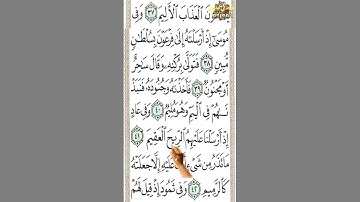 الْعَذَابَ الْأَلِيمَ ﴿٣٧﴾ وَفِي
مُوسَىٰ إِذْ أَرْسَلْنَاهُ إِلَىٰ فِرْعَوْنَ بِسُلْطَانٍ
مُّبِينٍ ﴿٣٨﴾ فَتَوَلَّىٰ بِرُكْنِهِ وَقَالَ سَاحِرٌ
أَوْ مَجْنُونٌ ﴿٣٩﴾ فَأَخَذْنَاهُ وَجُنُودَهُ فَنَبَذْ
نَاهُمْ فِي الْيَمِّ وَهُوَ مُلِيمٌ ﴿٤٠﴾ وَفِي عَادٍ
إِذْ أَرْسَلْنَا عَلَيْهِمُ الرِّيحَ الْعَقِيمَ ﴿٤١﴾
مَا تَذَرُ مِن شَيْءٍ عَلَيْهِ إِلَّا جَعَلَتْهُ
كَالرَّمِيمِ ﴿٤٢﴾ وَفِي ثَمُودَ إِذْ قِيلَ لَهُمْ